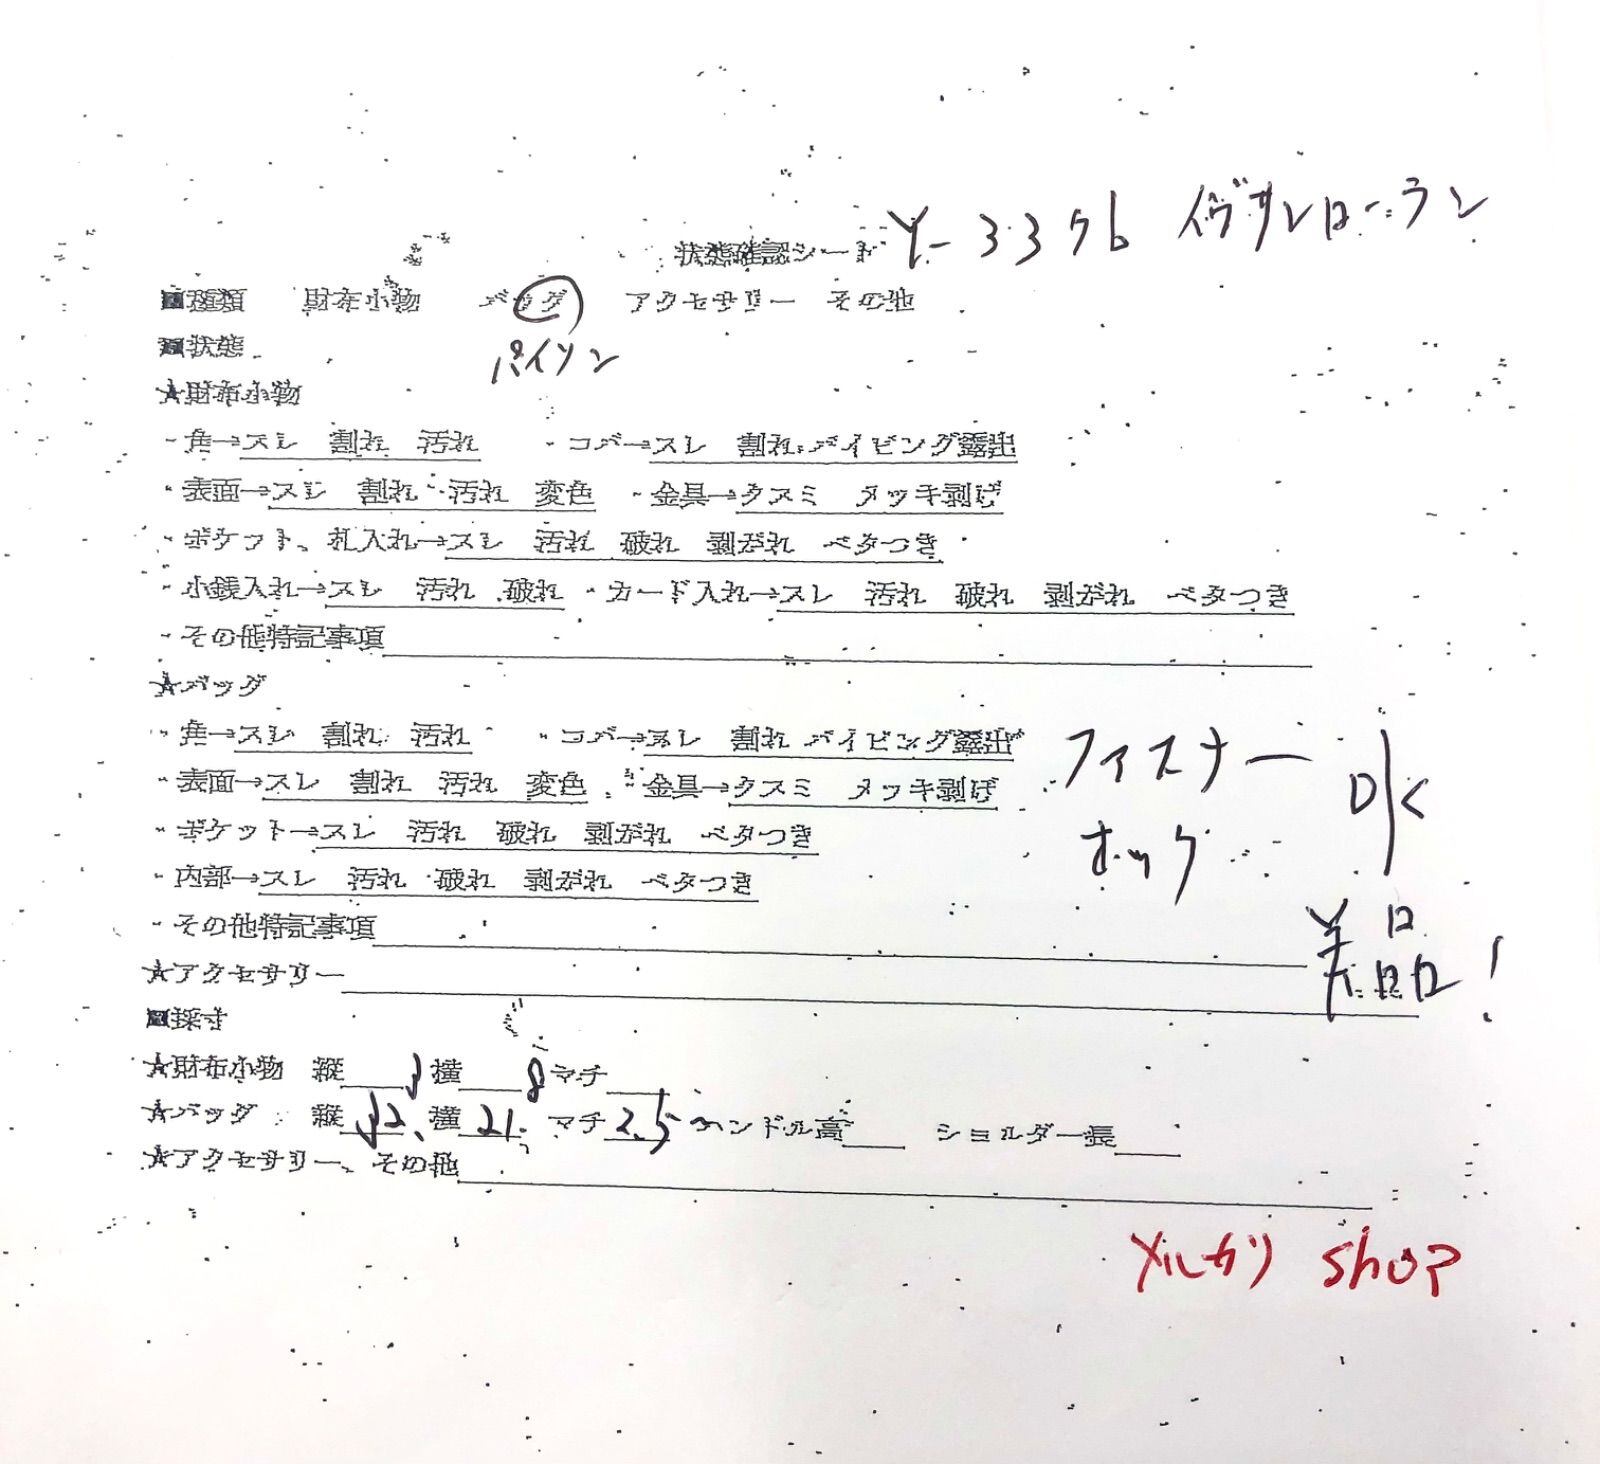 状態確認シート Y-3376 イヴサンローラン
■種類 財布小物 バッグ アクセサリー その他
■状態 パイソン
★財布小物
・角→スレ 割れ 汚れ ・コバ→スレ 割れ パイピング露出
・表面→スレ 割れ 汚れ 変色 ・金具→クスミ メッキ剥げ
・ポケット、札入れ→スレ 汚れ 破れ 剥がれ ベタつき
・小銭入れ→スレ 汚れ 破れ ・カード入れ→スレ 汚れ 破れ 剥がれ ベタつき
・その他特記事項
★バッグ
・角→スレ 割れ 汚れ ・コバ→スレ 割れ パイピング露出
ファスナー
・表面→スレ 割れ 汚れ 変色 ・金具→クスミ メッキ剥げ
OK
・ポケット→スレ 汚れ 破れ 剥がれ ベタつき
ホック
・内部→スレ 汚れ 破れ 剥がれ ベタつき
・その他特記事項
美品!
★アクセサリー
■採寸
★財布小物 縦 横 マチ
★バッグ 縦 横21. マチ2.5 ハンドル高 ショルダー長
★アクセサリー、その他
メルカリ shop